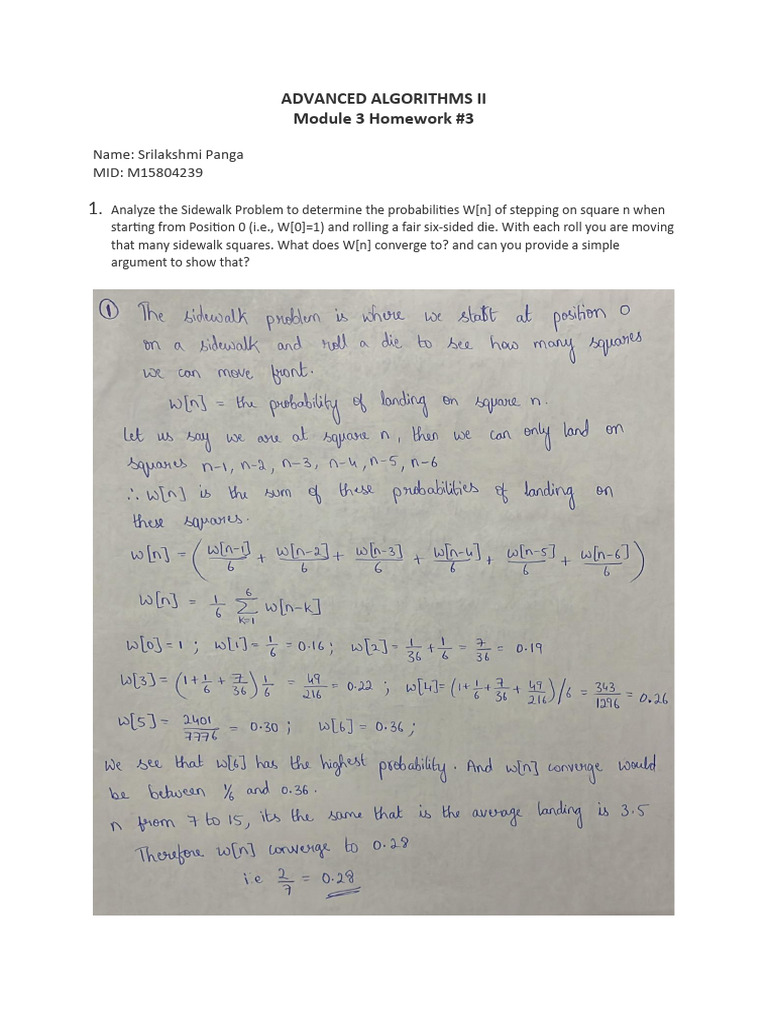 ADVANCED ALGORITHMS II
Module 3 Homework #3
Name: Srilakshmi Panga
MID: M15804239
1. Analyze the Sidewalk Problem to determine the probabilities W[n] of stepping on square n when
starting from Position 0 (i.e., W[0]=1) and rolling a fair six-sided die. With each roll you are moving
that many sidewalk squares. What does W[n] converge to? and can you provide a simple
argument to show that?
① The sidewalk problem is where we start at position 0
on a sidewalk and roll a die to see how many squares
we can move front.
W[n] = the probability of landing on square n.
Let us say we are at square n, then we can only land on
squares n-1, n-2, n-3, n-4, n-5, n-6
∴ W[n] is the sum of these probabilities of landing on
these squares.
W[n] = (W[n-1]/6 + W[n-2]/6 + W[n-3]/6 + W[n-4]/6 + W[n-5]/6 + W[n-6]/6)
W[n] = 1/6 6∑k=1 W[n-k]
W[0]=1 ; W[1]= 1/6 = 0.16 ; W[2]= 1/36 + 1/6 = 7/36 = 0.19
W[3] = (1+1/6+7/36)1/6 = 49/216 = 0.22 ; W[4]= (1+1/6+7/36+49/216)/6 = 343/1296 = 0.26
W[5] = 2401/7776 = 0.30 ; W[6] = 0.36 ;
We see that W[6] has the highest probability. And W[n] converge would
be between 1/6 and 0.36.
n from 7 to 15, its the same that is the average landing is 3.5
Therefore W[n] converge to 0.28
i.e 2/7 = 0.28